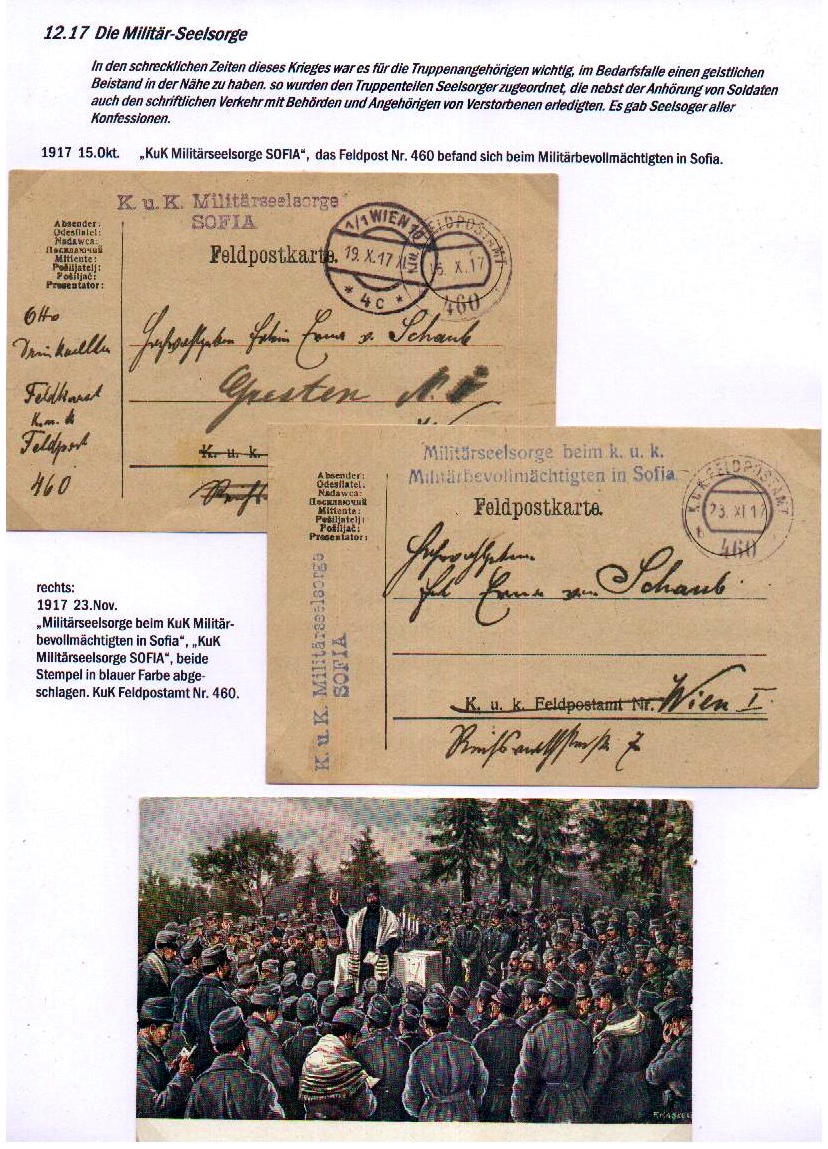 12.17 Die Militär-Seelsorge
In den schrecklichen Zeiten dieses Krieges war es für die Truppenangehörigen wichtig, im Bedarfsfalle einen geistlichen
Beistand in der Nähe zu haben. so wurden den Truppenteilen Seelsorger zugeordnet, die nebst der Anhörung von Soldaten
auch den schriftlichen Verkehr mit Behörden und Angehörigen von Verstorbenen erledigten. Es gab Seelsoger aller
Konfessionen.
1917 15.Okt. „KuK Militärseelsorge SOFIA“, das Feldpost Nr. 460 befand sich beim Militärbevollmächtigten in Sofia.
K. u. K. Militärseelsorge
SOFIA
Absender:
Odesilatel:
Nadawca:
Посилаючий
Mittente:
Pošiljatelj:
Pošiljač:
Presentator:
Feldpostkarte.
1/1 WIEN
19. X. 17
* 4c *
FELDPOSTAMT
15. X. 17
460
Otto
Feldkurat
K. u. k.
Feldpost
460
v. Schaub
Gresten N.
K. u. k.
Militärseelsorge beim k. u. k.
Militärbevollmächtigten in Sofia
Absender:
Odesilatel:
Nadawca:
Посилаючий
Mittente:
Pošiljatelj:
Pošiljač:
Presentator:
Feldpostkarte.
K.u.K. FELDPOSTAMT
23. XI 17
b
460
K. u. K. Militärseelsorge
SOFIA
von Schaub
K. u. k. Feldpostamt Nr. Wien I.
7
rechts:
1917 23.Nov.
„Militärseelsorge beim KuK Militär-
bevollmächtigten in Sofia“, „KuK
Militärseelsorge SOFIA“, beide
Stempel in blauer Farbe abge-
schlagen. KuK Feldpostamt Nr. 460.